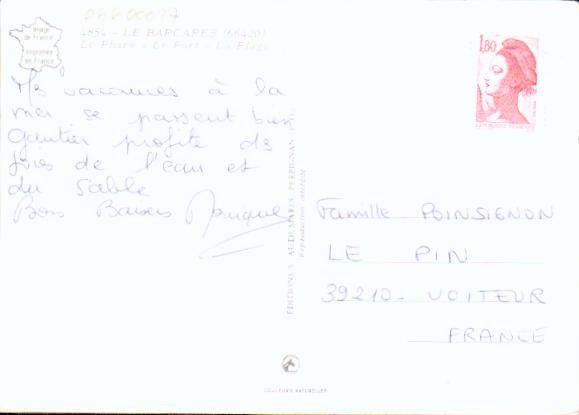 06600077
Image
de France
Imprimée
en France
4854 - LE BARCARES (66420)
Le Phare - Le Port - La Plage
1,80
Ms vacances à la
mer se passent bien
Gautier profite des
joies de l'eau et
du Sable
Bons Baisers Monique
EDITIONS S. AUDUMARES, PERPIGNAN (P.O.)
Reproduction interdite
Famille POINSIGNON
LE PIN
39210 - VOITEUR
FRANCE
COULEURS NATURELLES